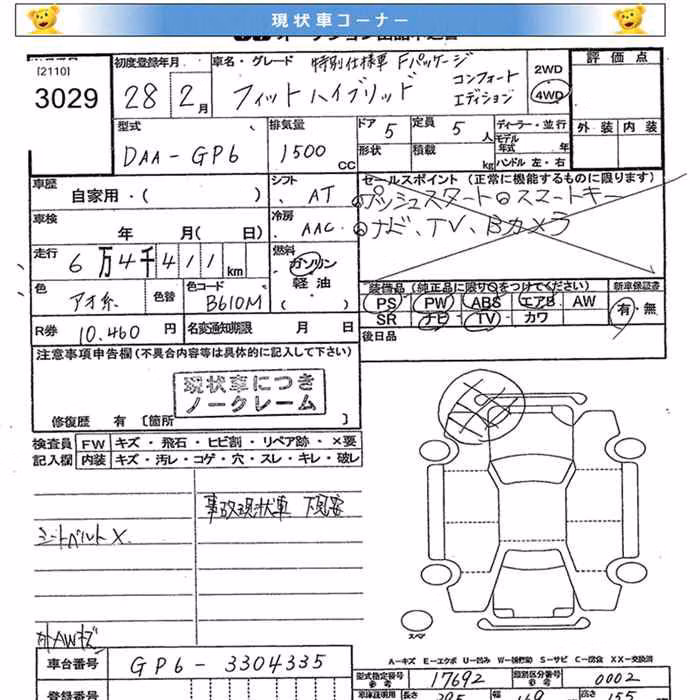 現状車コーナー
[2110]
3029
初度登録年月
28 年 2 月
車名・グレード 特別仕様車 Fパッケージ
フィットハイブリッド コンフォート
エディション
2WD
4WD
評価点
外装 内装
型式
DAA-GP6
排気量
1500 CC
ドア 5
定員 5 人
形状
積載 kg
ディーラー・並行
モデル年式 年
ハンドル 左・右
車歴
自家用・( )
シフト
AT
セールスポイント (正常に機能するものに限ります)
プッシュスタート スマートキー
ナビ、TV、Bカメラ
車検
年 月( 日)
冷房
AAC
走行
6万4千411km
燃料
ガソリン
軽油
( )
色
アオ系
色替
色コード
B610M
装備品 (純正品に限り○をつけてください)
PS PW ABS エアB AW
SR ナビ TV カワ
新車保証書
有・無
R券 10,460 円
名変通知期限 月 日
後日品
注意事項申告欄 (不具合内容等は具体的に記入して下さい)
現状車につき
ノークレーム
修復歴 有 [箇所 ]
検査員 FW キズ・飛石・ヒビ割・リペア跡・×要
記入欄 内装 キズ・汚レ・コゲ・穴・スレ・キレ・破レ
事故現状車 下見要
シートベルト×
外AWキズ
スペア
A-キズ E-エクボ U-凹み W-補修跡 S-サビ C-腐食 XX-交換済
車台番号 GP6-3304335
型式指定番号 17692
類別区分番号 0002
登録番号
長さ 395
幅 169
高さ 155